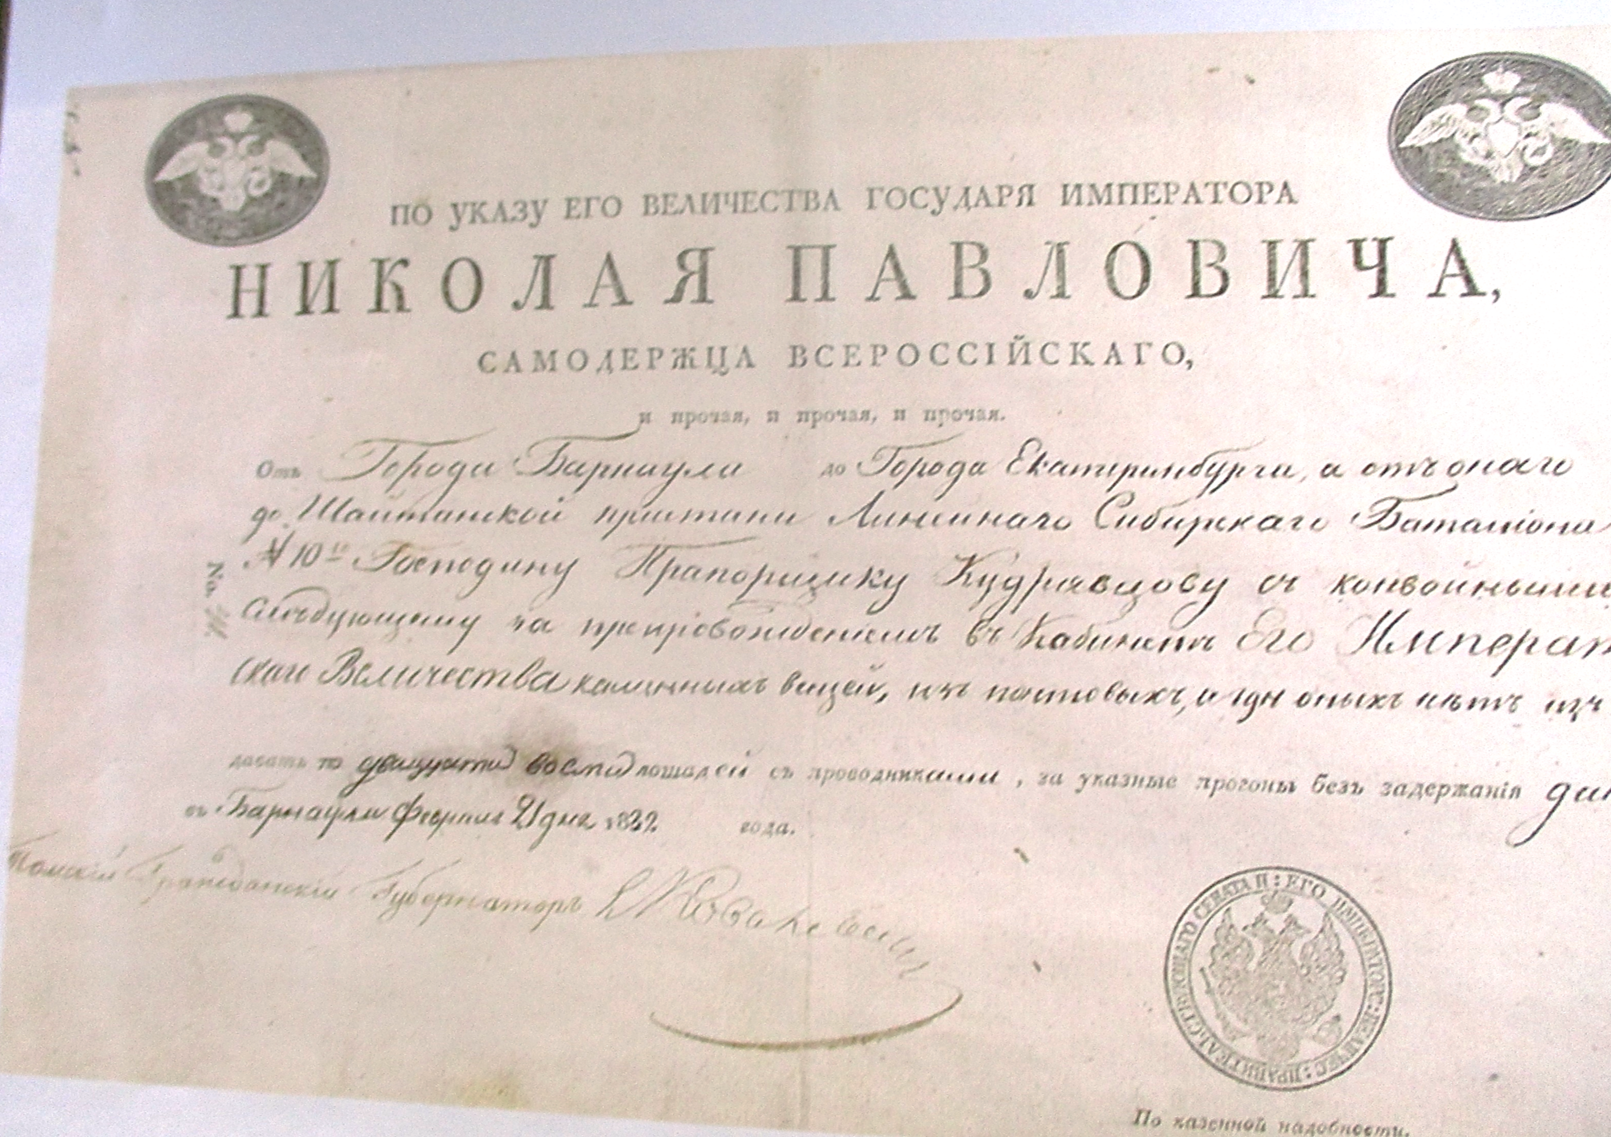 ПО УКАЗУ ЕГО ВЕЛИЧЕСТВА ГОСУДАРЯ ИМПЕРАТОРА
НИКОЛАЯ ПАВЛОВИЧА,
САМОДЕРЖЦА ВСЕРОССІЙСКАГО,
и прочая, и прочая, и прочая.
Отъ Города Барнаула до Города Екатеринбурга, а отъ онаго
до Шайтанской пристани Линейнаго Сибирскаго Баталіона
№ 10го Господину Прапорщику Кудрявцову съ конвойными
слѣдующему за препровожденіемъ въ Кабинетъ Его Император
скаго Величества каменныхъ вещей, изъ почтовыхъ, а гдѣ оныхъ нѣтъ изъ
давать по двадцати восми лошадей съ проводниками, за указные прогоны безъ задержанія
въ Барнаулѣ Февраля 21 дня 1832 года.
Томскій Гражданскій Губернаторъ Е Ковалевскій
No.
ПРАВИТЕЛЬСТВУЮЩАГО СЕНАТА П: ЕГО ИМПЕРАТОРС: ВЕЛИЧЕС:
По казенной надобности.